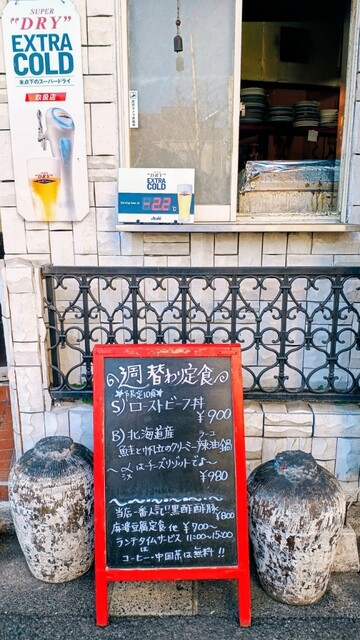 SUPER
"DRY"
EXTRA
COLD
氷点下のスーパードライ
取扱店
"DRY"
EXTRA
COLD
-2.2℃
Asahi
週替わり定食
*限定10食*
S)ローストビーフ丼
¥900
B)北海道産
鮭と帆立のクリーミー辣油鍋
〆はチーズリゾットでよ~
¥980
当店一番人気!!黒酢酢豚
¥800
麻婆豆腐定食 他 ¥700~
ランチタイムサービス 11:00~15:00
は
コーヒー・中国茶は無料!!